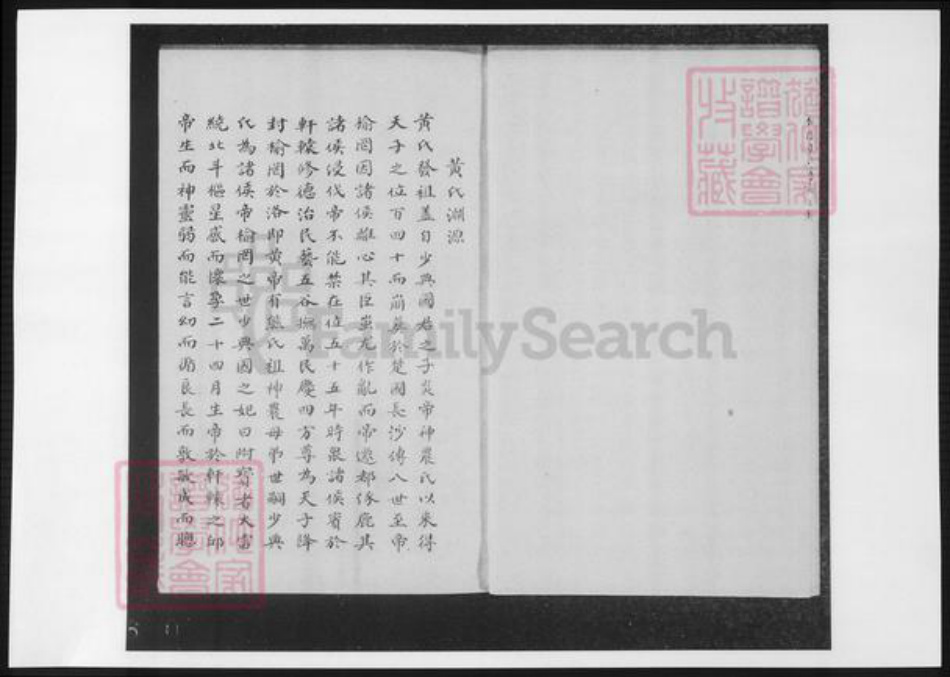 黃氏淵源
黃氏發祖蓋自少典國君之子炎帝神農氏以來得
天子之位百四十而崩葬於楚國長沙傳八世至帝
榆罔因諸侯離心其臣蚩尤作亂而帝遜都涿鹿其
諸侯侵伐帝不能禁在位五十五年時衆諸侯賓於
軒轅修德治民藝五谷撫萬民慶四方尊為天子降
封榆罔於洛即黃帝有熊氏祖神農母弟世嗣少典
氏為諸侯帝榆罔之世少典國之妃曰附寶者大雷
繞北斗樞星感而懷孕二十四月生帝於軒轅之邱
帝生而神靈弱而能言幼而 長而敦敏成而聰
FamilySearch
譜學會
收藏